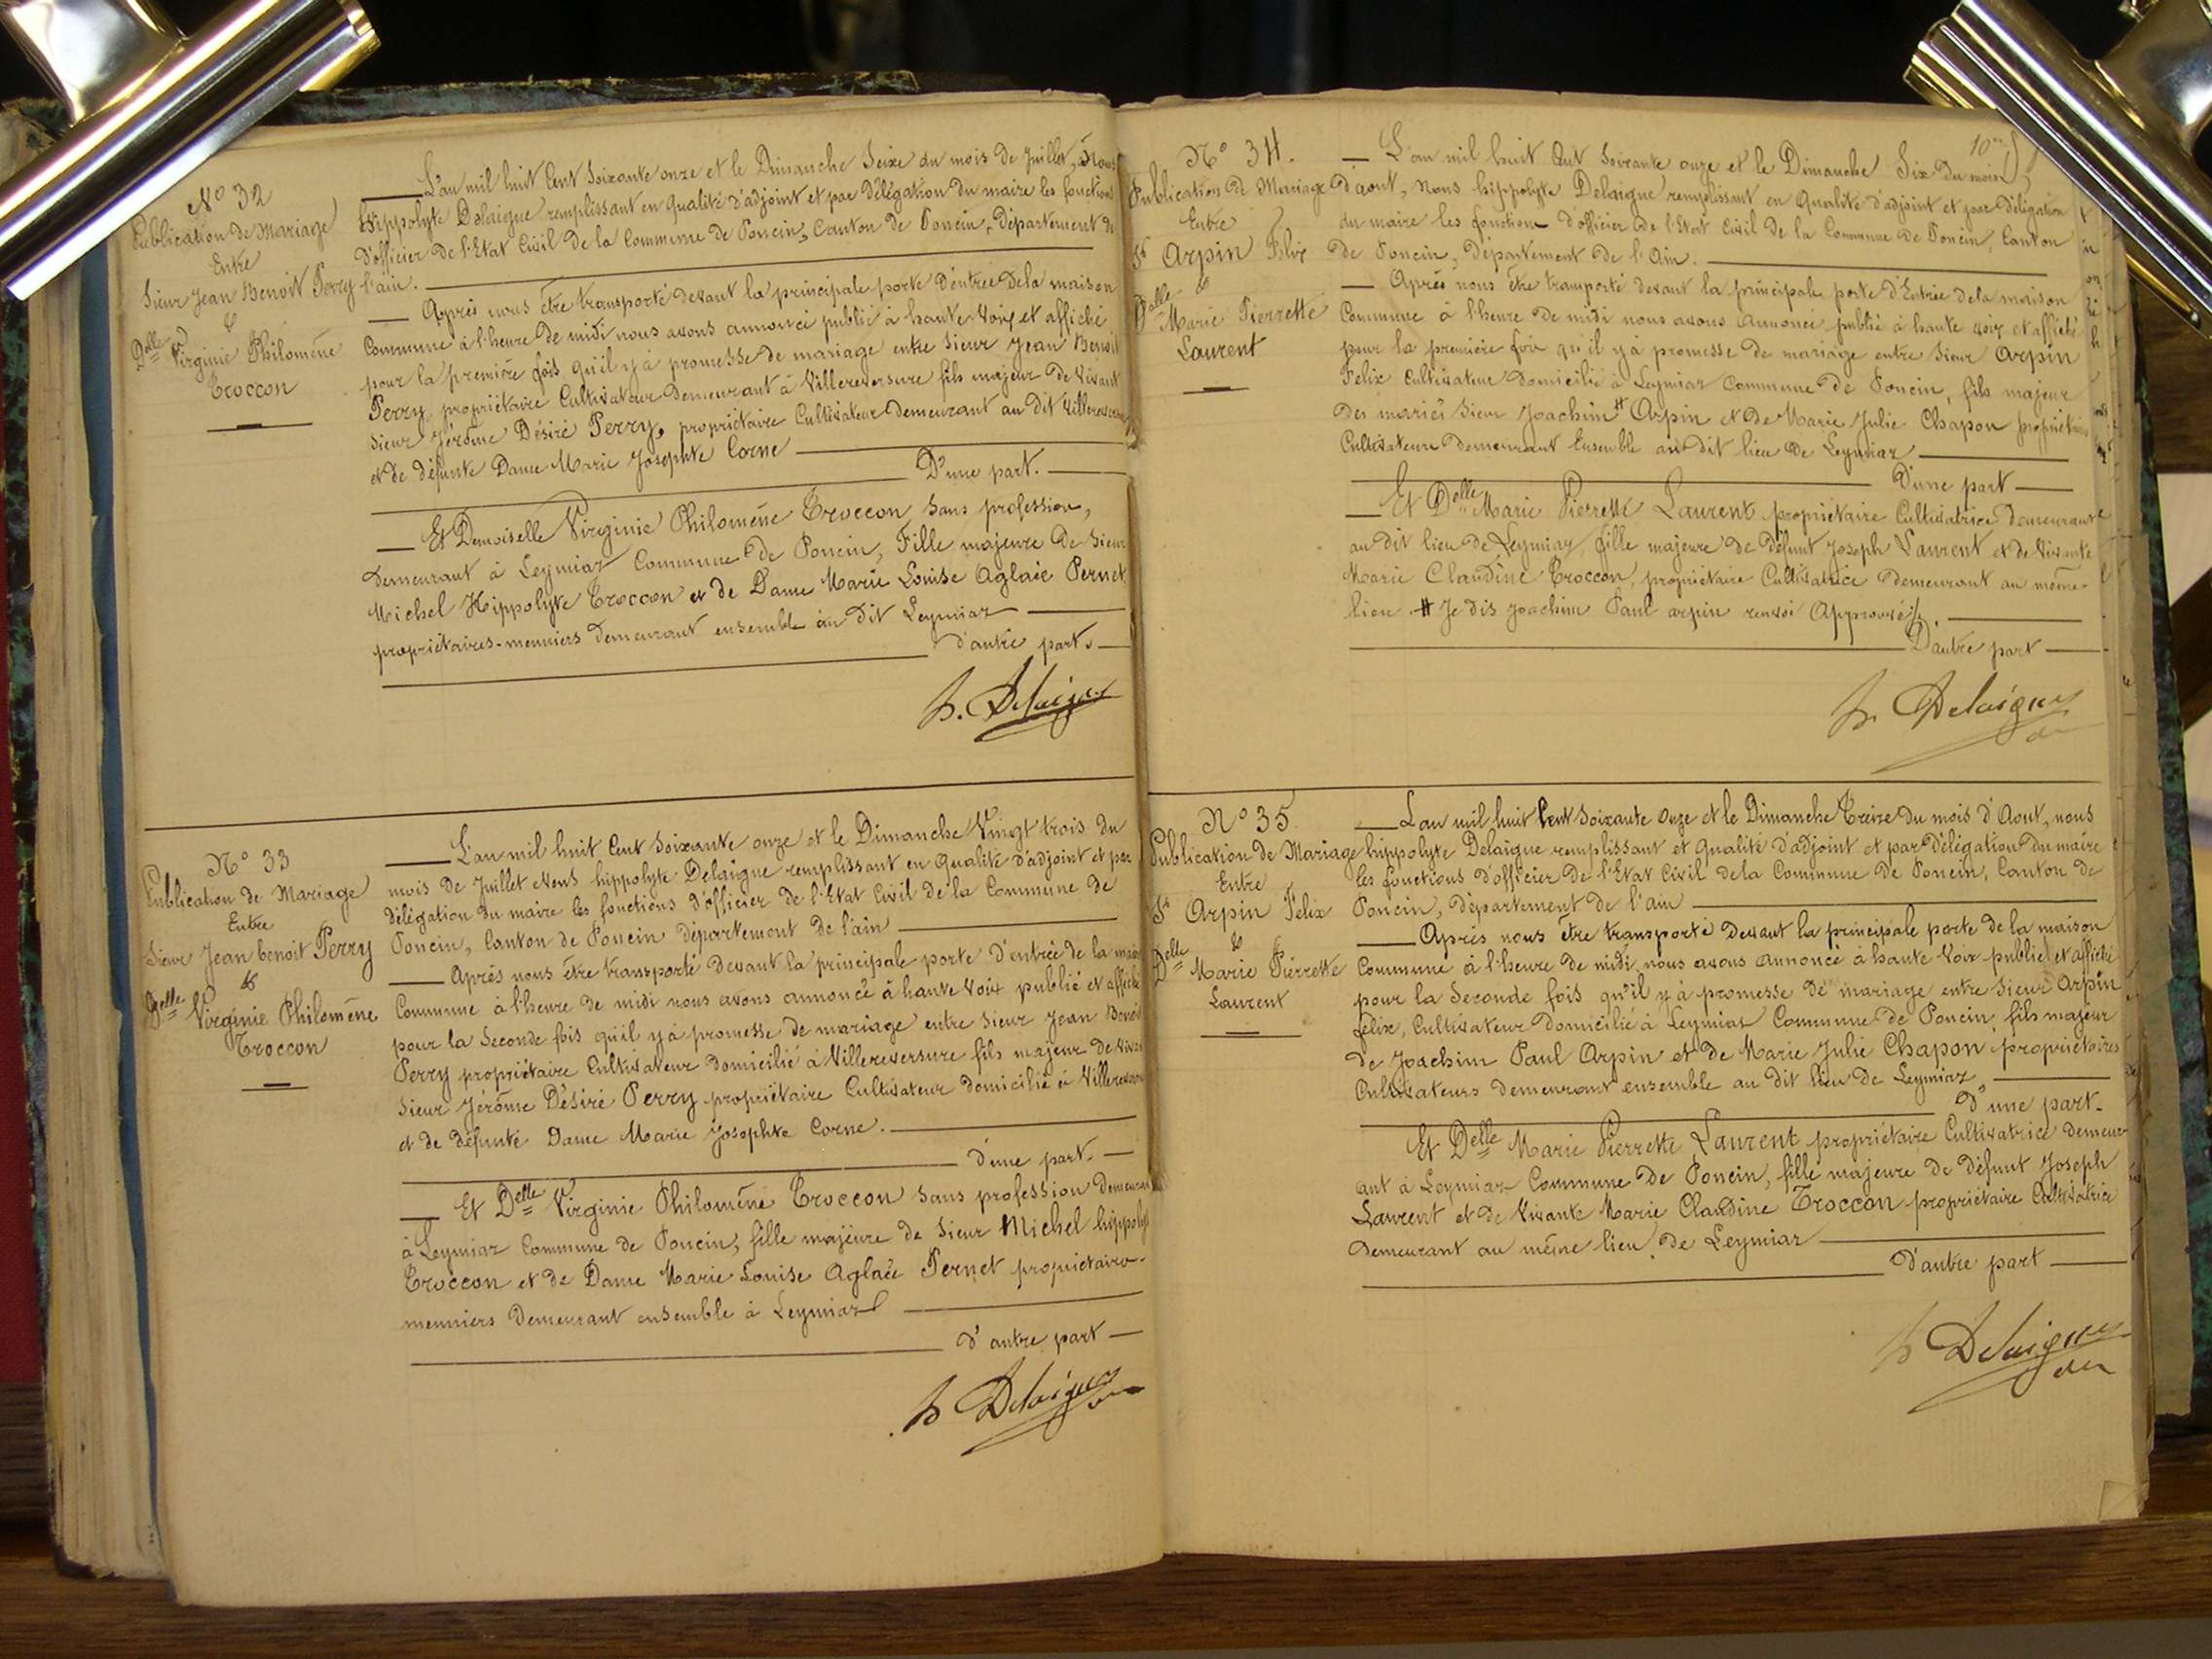 N° 32
Publication de Mariage
Entre
Sieur Jean Benoît Perry
&
Delle Virginie Philomène
Troccon
L'an mil huit Cent Soixante onze et le Dimanche Seize du mois de Juillet, Nous
Hippolyte Delaigue remplissant en Qualité d'adjoint et par Délégation du maire les fonctions
d'officier de l'Etat Civil de la Commune de Poncin, Canton de Poncin, Département de
l'ain.
Après nous être transporté devant la principale porte d'entrée de la maison
Commune à l'heure de midi nous avons annoncé publié à haute voix et affiché
pour la première fois qu'il y à promesse de mariage entre Sieur Jean Benoit
Perry propriétaire Cultivateur Demeurant à Villereversure fils majeur de vivant
Sieur Jérôme Désiré Perry, propriétaire Cultivateur Demeurant au dit Villereversure
et de défunte Dame Marie Josephte Corne
D'une part.
Et Demoiselle Virginie Philomène Troccon, Sans profession,
Demeurant à Leymiaz Commune de Poncin, Fille majeure de Sieur
Michel Hippolyte Troccon et de Dame Marie Louise Aglaée Pernet
propriétaires-meuniers Demeurant ensemble au Dit Leymiaz
d'autre part.
h. Delaigue
N° 33
Publication de Mariage
Entre
Sieur Jean benoit Perry
&
Delle Virginie Philomène
Troccon
L'an mil huit Cent Soixante onze et le Dimanche Vingt trois du
mois de Juillet Nous hippolyte Delaigue remplissant en Qualité d'adjoint et par
délégation du maire les fonctions d'officier de l'Etat Civil de la Commune de
Poncin, Canton de Poncin département de l'ain
Après nous être transporté devant la principale porte d'entrée de la maison
Commune à l'heure de midi nous avons annoncé à haute voix publié et affiché
pour la Seconde fois qu'il y à promesse de mariage entre Sieur Jean Benoit
Perry propriétaire Cultivateur domicilié à Villereversure fils majeur de vivant
Sieur Jérôme Désiré Perry propriétaire Cultivateur domicilié à Villereversure
et de défunte Dame Marie Josephte Corne.
d'une part.
Et Delle Virginie Philomène Troccon Sans profession Demeurant
à Leymiaz Commune de Poncin, fille majeure de Sieur Michel hippolyte
Troccon et de Dame Marie Louise Aglaée Pernet propriétaire-
meuniers Demeurant ensemble à Leymiaz
d'autre part
h Delaigue
10me
N° 34.
Publication de Mariage
Entre
Sr Arpin Felix
&
Delle Marie Pierrette
Laurent
L'an mil huit Cent Soixante onze et le Dimanche Six Du mois
d'aout, Nous hippolyte Delaigue remplissant en Qualité d'adjoint et par Délégation
du maire les fonctions d'officier de l'Etat Civil de la Commune de Poncin, Canton
de Poncin, Département de l'Ain.
Après nous être transporté devant la principale porte d'Entrée de la maison
Commune à l'heure de midi nous avons annoncé publié à haute voix et affiché
pour la première fois qu'il y à promesse de mariage entre Sieur Arpin
Felix Cultivateur domicilié à Leymiaz Commune de Poncin, fils majeur
des mariés Sieur Joachim # Arpin et de Marie Julie Chapon propriétaires
Cultivateurs demeurant Ensemble au dit lieu de Leymiaz
D'une part
Et Delle Marie Pierrette Laurent propriétaire Cultivatrice demeurante
au dit lieu de Leymiaz, fille majeure de défunt Joseph Laurent et de Vivante
Marie Claudine Troccon, propriétaire Cultivatrice demeurant au même
lieu # Je dis Joachim Paul arpin renvoi Approuvé
D'autre part
h. Delaigue
N° 35
Publication de Mariage
Entre
Sr Arpin Felix
&
Delle Marie Pierrette
Laurent
L'an mil huit Cent Soixante Onze et le Dimanche Treize Du mois d'Aout, nous
hippolyte Delaigue remplissant et Qualité d'adjoint et par Délégation Du maire
les fonctions d'officier de l'Etat Civil de la Commune de Poncin, Canton de
Poncin, département de l'ain
Après nous être transporté devant la principale porte de la maison
Commune à l'heure de midi, nous avons annoncé à haute Voix publié et affiché
pour la Seconde fois qu'il y à promesse de mariage entre Sieur Arpin
felix, Cultivateur Domicilié à Leymiaz Commune de Poncin, fils majeur
de Joachim Paul Arpin et de Marie Julie Chapon propriétaires
Cultivateurs demeurant ensemble au dit lieu de Leymiaz,
d'une part.
Et Delle Marie Pierrette Laurent propriétaire Cultivatrice demeur-
ant à Leymiaz Commune de Poncin, fille majeure de défunt Joseph
Laurent et de Vivante Marie Claudine Troccon propriétaire Cultivatrice
demeurant au même lieu de Leymiaz
d'autre part
h Delaigue